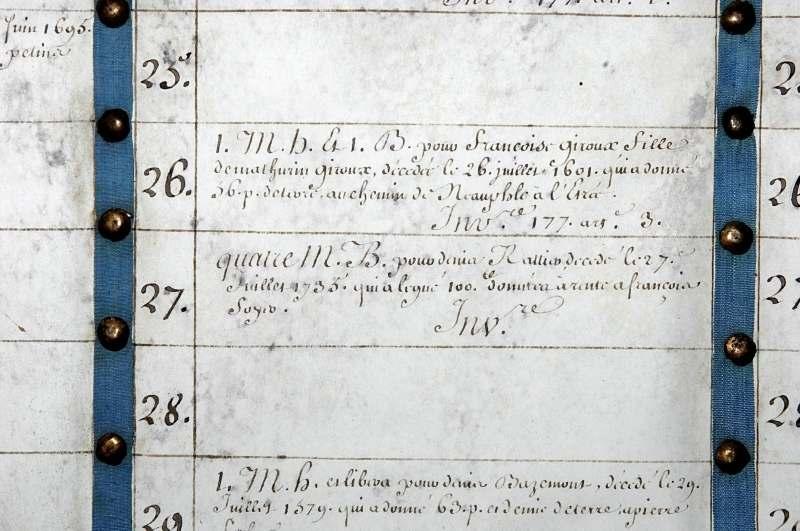 Inv. 177. art. 1.
Juin 1695.
25.
1. M. h. Et 1. B. pour Françoise Giroux Fille
de mathurin giroux, décédée le 26. juillet 1601. qui a donné
26.
36. p. de terre, au chemin de Neauphle à l'Etra.
Inv.re 177. art.e 3.
quatre M. B. pour denis Rattier décédé le 27.e
Juillet 1735. qui a legué 100. a rente a françois
27.
Inv.re
28.
1. M. h. et libera pour denis Bazemont, décédé le 29.
Juillet 1579. qui a donné 63. p. et demie de terre, a pierre
29